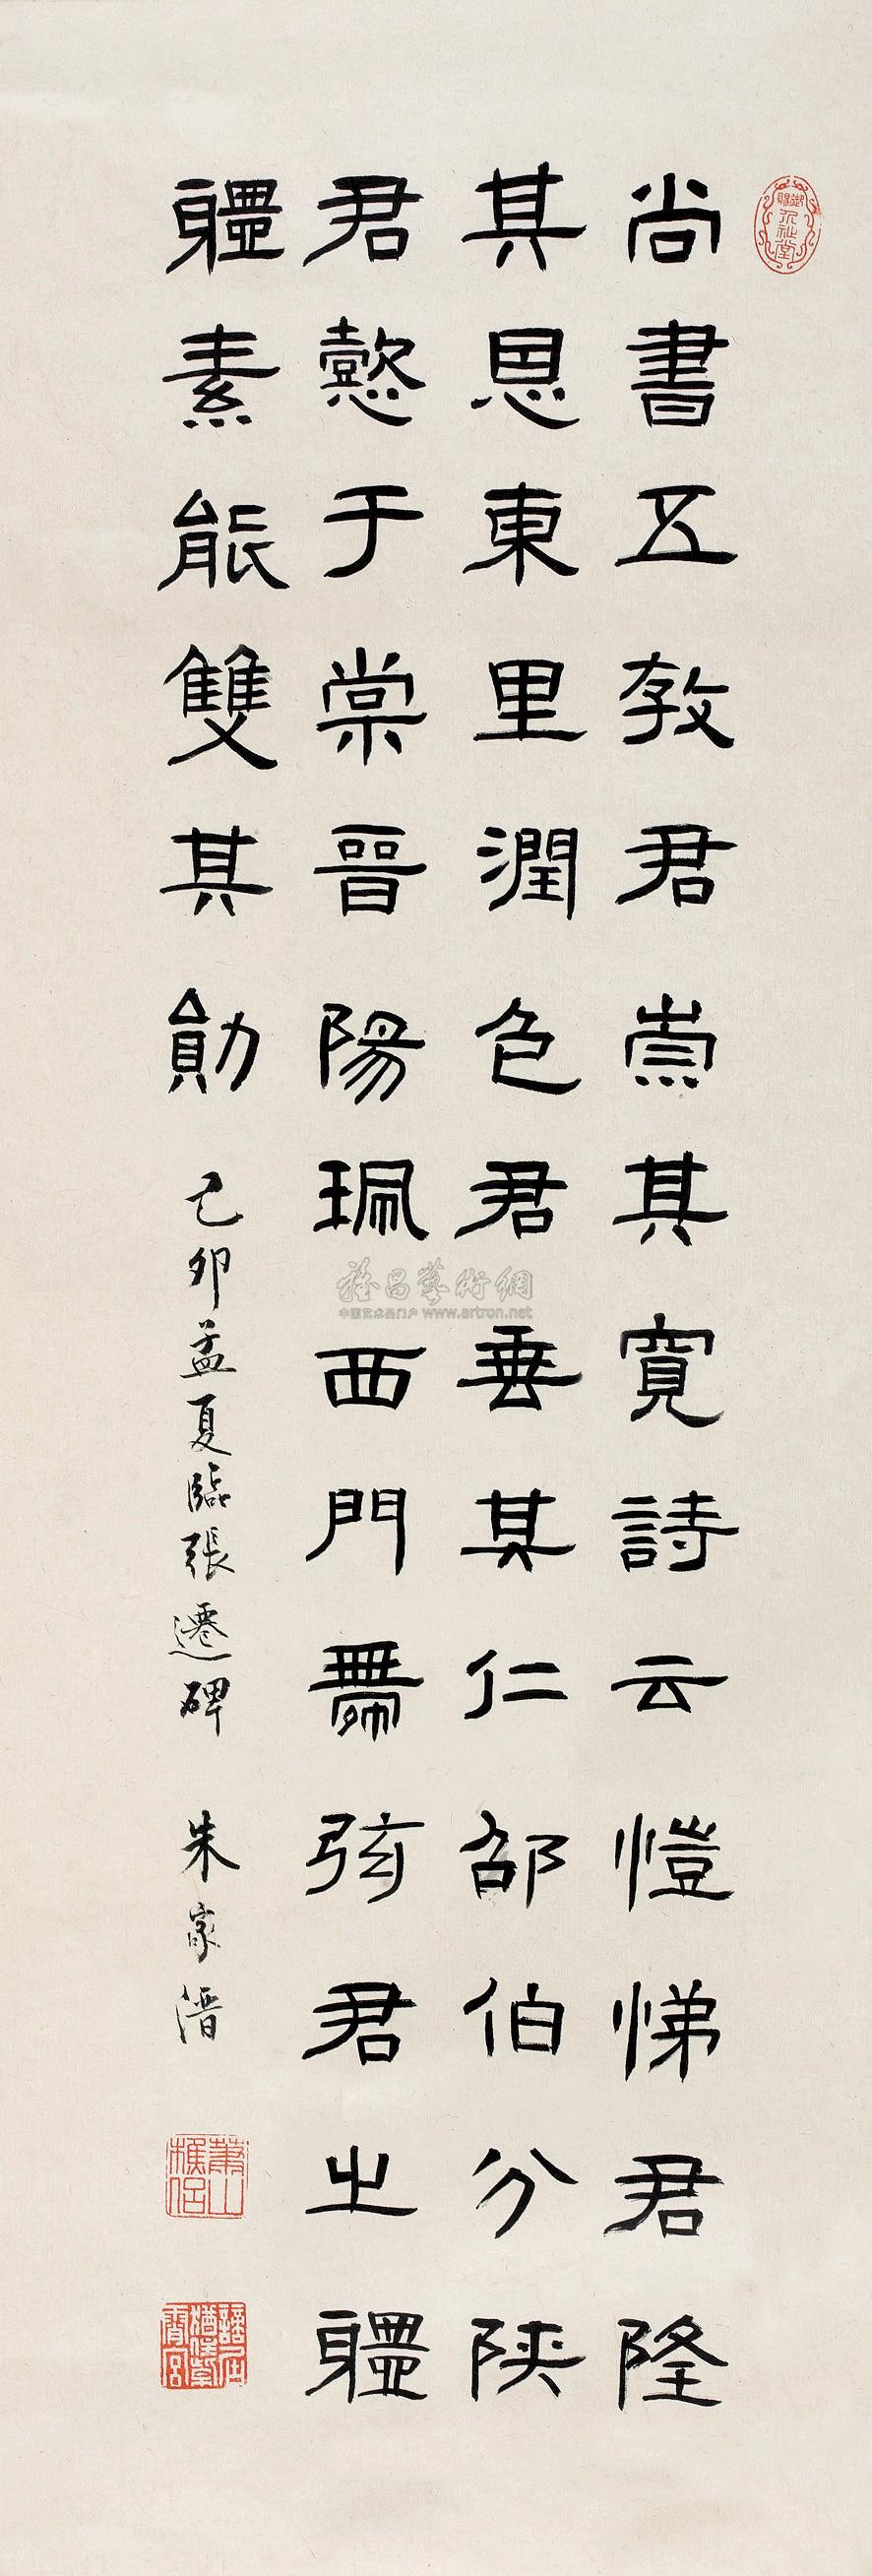 尚書五教君崇其寬詩云愷悌君隆
其恩東里潤色君垂其仁邵伯分陝
君懿于棠晉陽珮西門帶弦君之軆
軆素能雙其勛
己卯孟夏臨張遷碑 朱家溍
蕭山樵侶
中国艺术品门户 www.artron.net